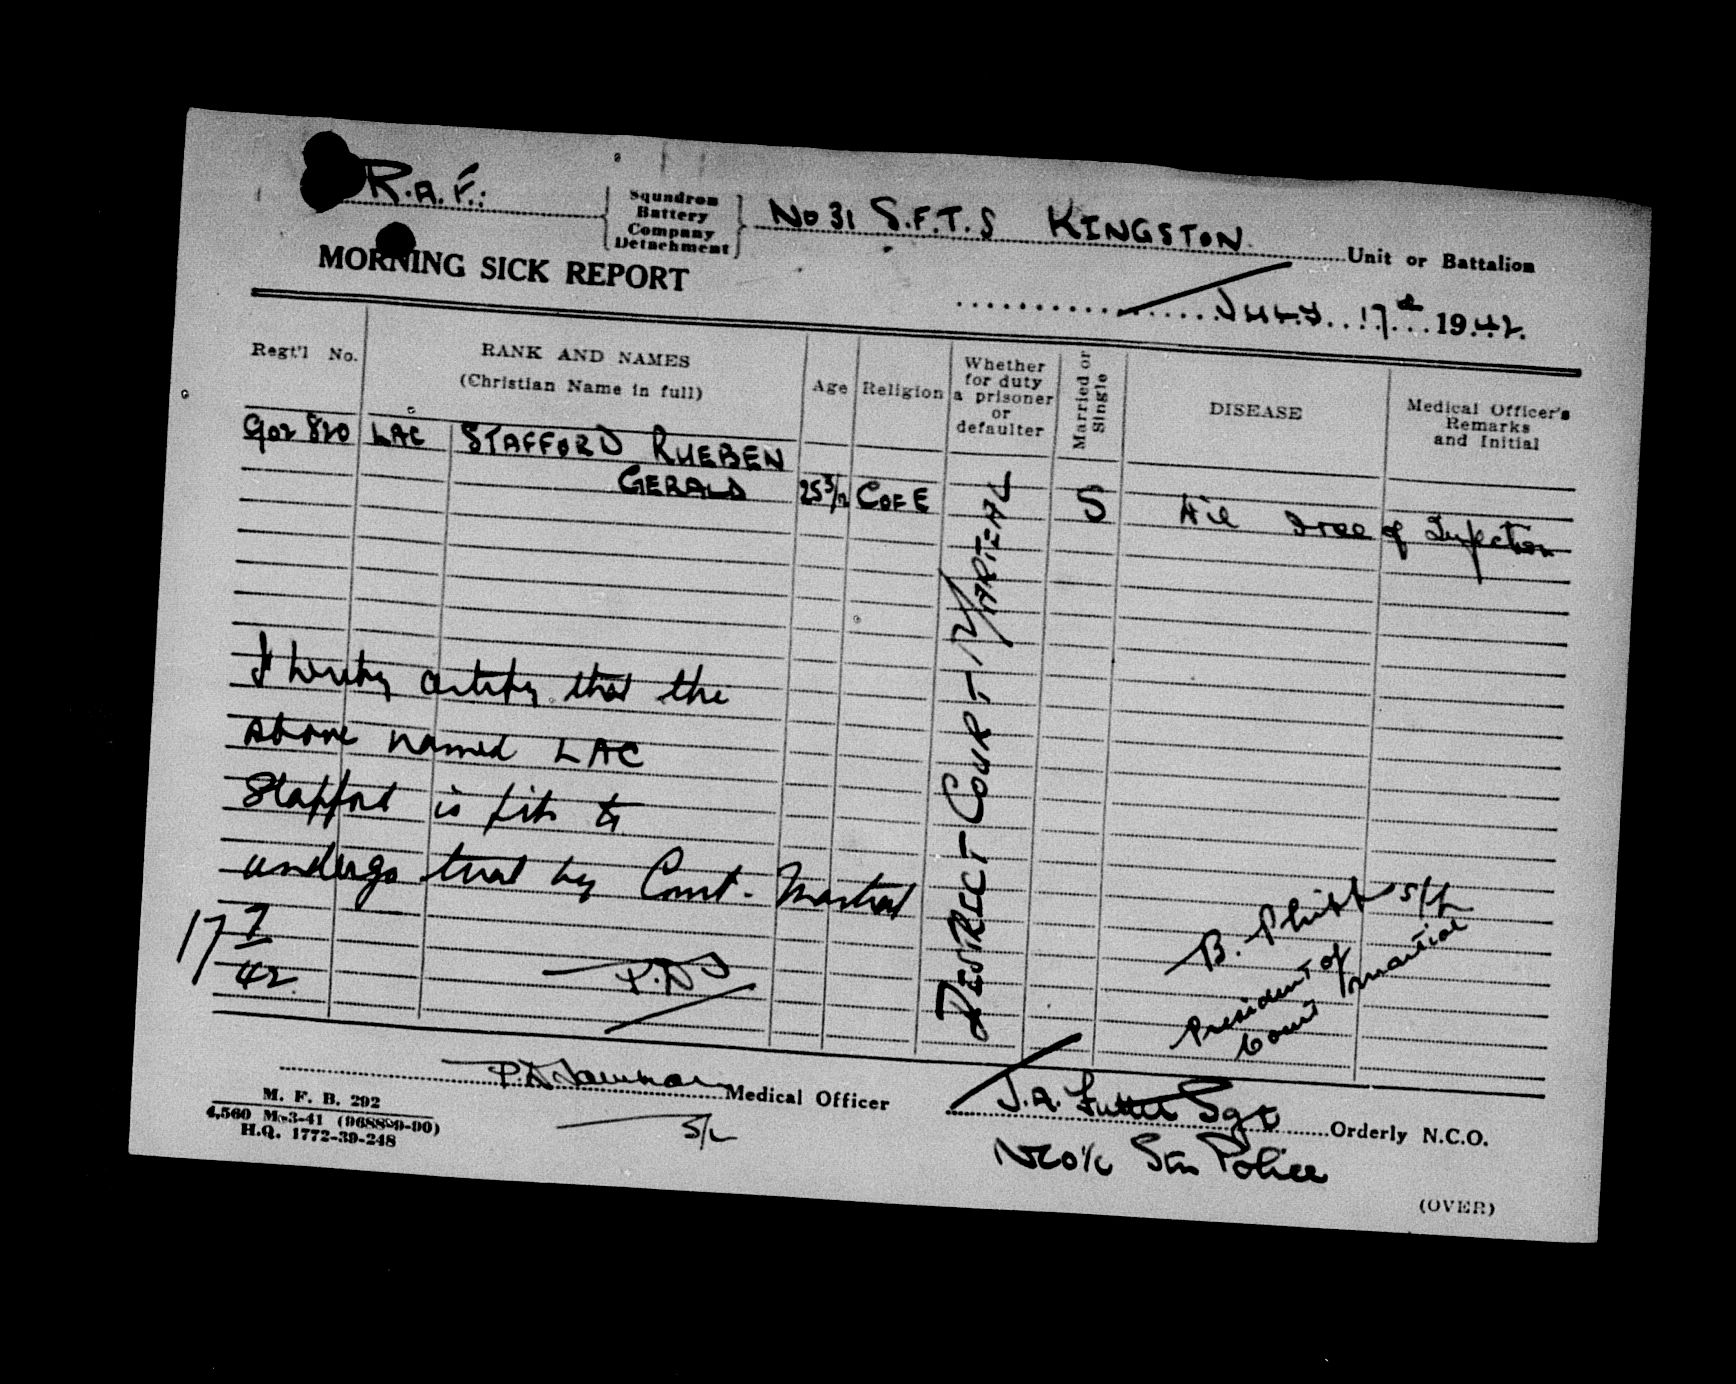 R.A.F.
Squadron
Battery
Company
Detachment
No 31 S.F.T.S KINGSTON Unit or Battalion
MORNING SICK REPORT
JULY 17th 1942.
Regt'l No.
RANK AND NAMES
(Christian Name in full)
Age
Religion
Whether
for duty
a prisoner
or
defaulter
Married or
Single
DISEASE
Medical Officer's
Remarks
and Initial
902820 LAC STAFFORD RUEBEN
GERALD 25 3/12 C OF E S Nil Free of Infection
DISTRICT COURT MARTIAL
I hereby certify that the
above named LAC
Stafford is fit to
undergo trial by Court-Martial
17 7/42
B. S/L
President of
Court Martial
Medical Officer
S/L
J.A. Sgt Orderly N.C.O.
NCO i/c Stn Police
M. F. B. 292
H.Q. 1772-39-248
(OVER)